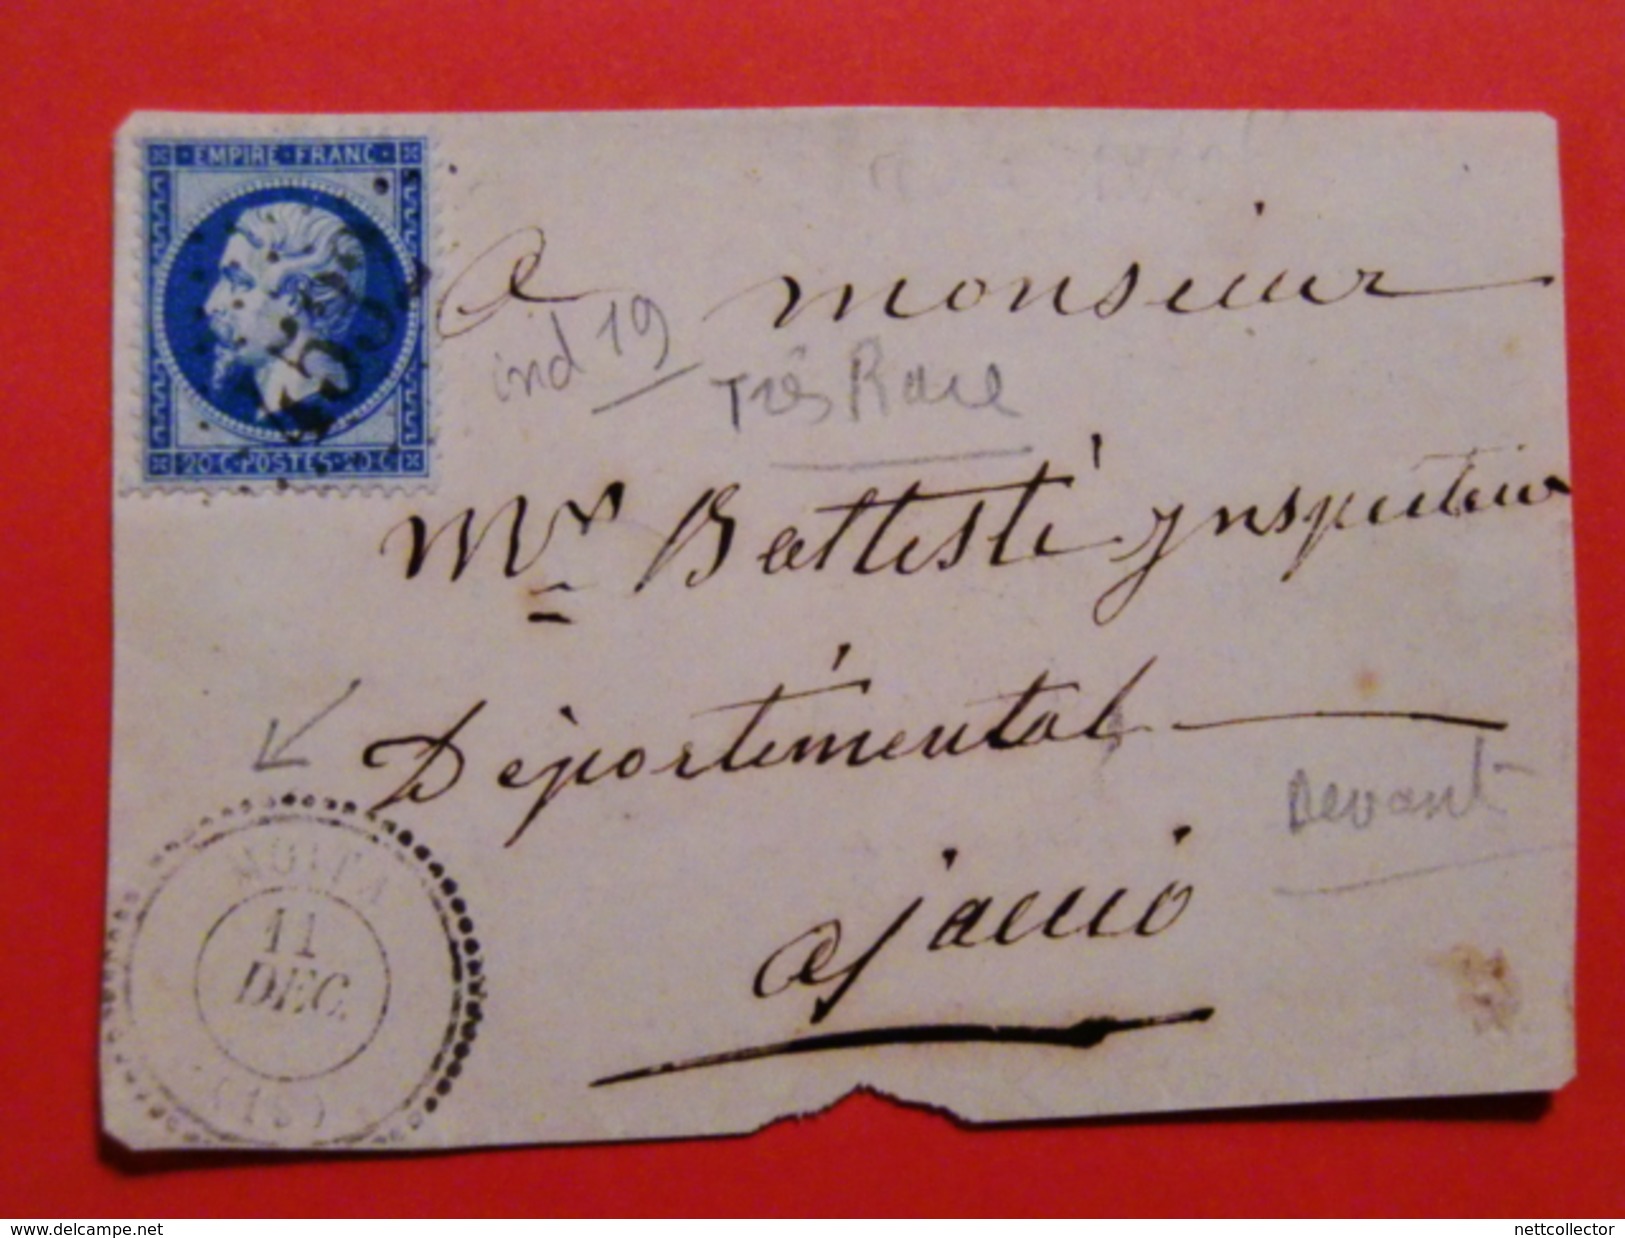 EMPIRE · FRANC ·
20 C · POSTES · 20 C
A monsieur
ind 19
Très Rare
Mr Battesti ynspecteur
Départémental
Devant
ajaccio
MOITA
11
DEC.
(19)
© www.delcampe.net
nettcollector